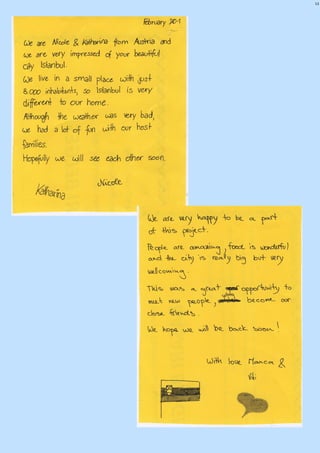 February 2011
We are Nicole & Katharina from Austria and
we are very impressed of your beautiful
city Istanbul.
We live in a small place with just
8.000 inhabitants, so Istanbul is very
different to our home.
Although the weather was very bad,
we had a lot of fun with our host
families.
Hopefully we will see each other soon.
Nicole
Katharina
We are very happy to be a part
of this project.
People are amazing, food is wonderful
and the city is really big but very
wellcoming.
This was a great opportunity to
meet new people, become our
close friends.
We hope we will be back soon!
With love